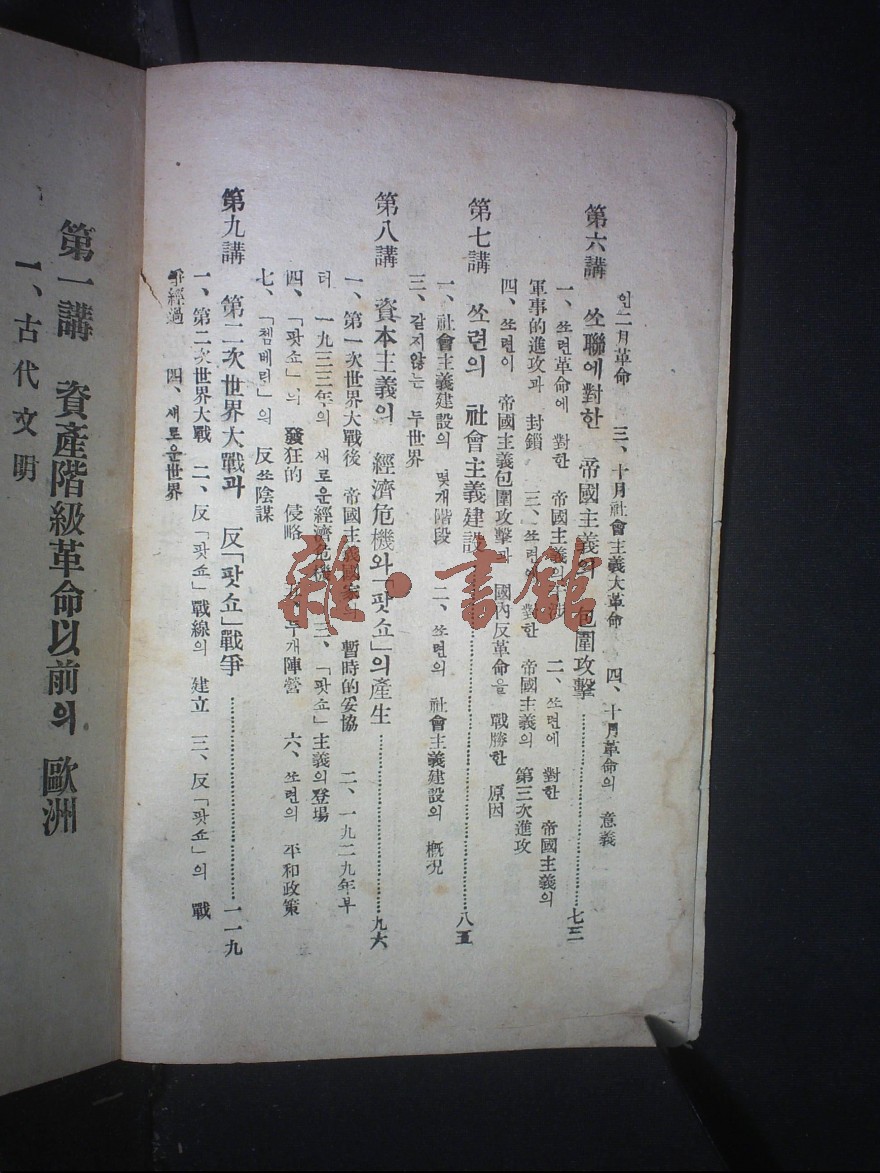 인二月革命 三、十月社會主義大革命 四、十月革命의 意義
第六講 쏘聯에對한 帝國主義의 包圍攻擊 七三
一、쏘련革命에 對한 帝國主義의 二、쏘련에 對한 帝國主義의
軍事的進攻과 封鎖 三、쏘련에 對한 帝國主義의 第三次進攻
四、쏘련이 帝國主義包圍攻擊과 國內反革命을 戰勝한 原因
第七講 쏘련의 社會主義建設 八五
一、社會主義建設의 몇개階段 二、쏘련의 社會主義建設의 槪況
三、같지않는 두世界
第八講 資本主義의 經濟危機와「팟쇼」의產生 九六
一、第一次世界大戰後 帝國主義國家 暫時的妥協 二、一九二九年부
터 一九三三年의 새로운經濟危機 三、「팟쇼」主義의登場
四、「팟쇼」의 發狂的 侵略 五、두개陣營 六、쏘련의 平和政策
七、「쳄베린」의 反쏘陰謀
第九講 第二次世界大戰과 反「팟쇼」戰爭 一一九
一、第二次世界大戰 二、反「팟쇼」戰線의 建立 三、反「팟쇼」의 戰
爭經過 四、새로운世界
第一講 資產階級革命以前의 歐洲
一、古代文明
雜·書館